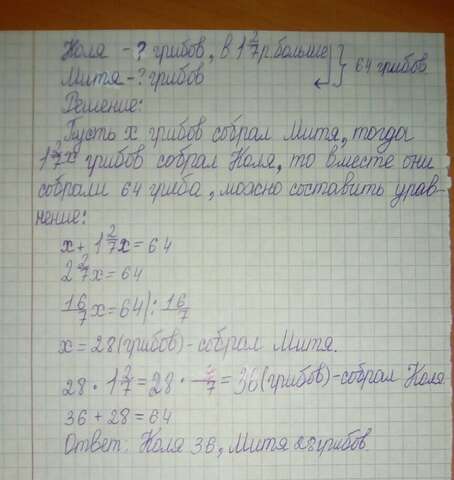 Коля - ? грибов, в 1 2/7 р. больше } 64 грибов
Митя - ? грибов
Решение:
Пусть x грибов собрал Митя, тогда
1 2/7 x грибов собрал Коля, то вместе они
собрали 64 гриба, можно составить урав-
нение:
x + 1 2/7 x = 64
2 2/7 x = 64
16/7 x = 64 | : 16/7
x = 28 (грибов) - собрал Митя.
28 · 1 2/7 = 28 · /7 = 36 (грибов) - собрал Коля
36 + 28 = 64
Ответ: Коля 36, Митя 28 грибов.